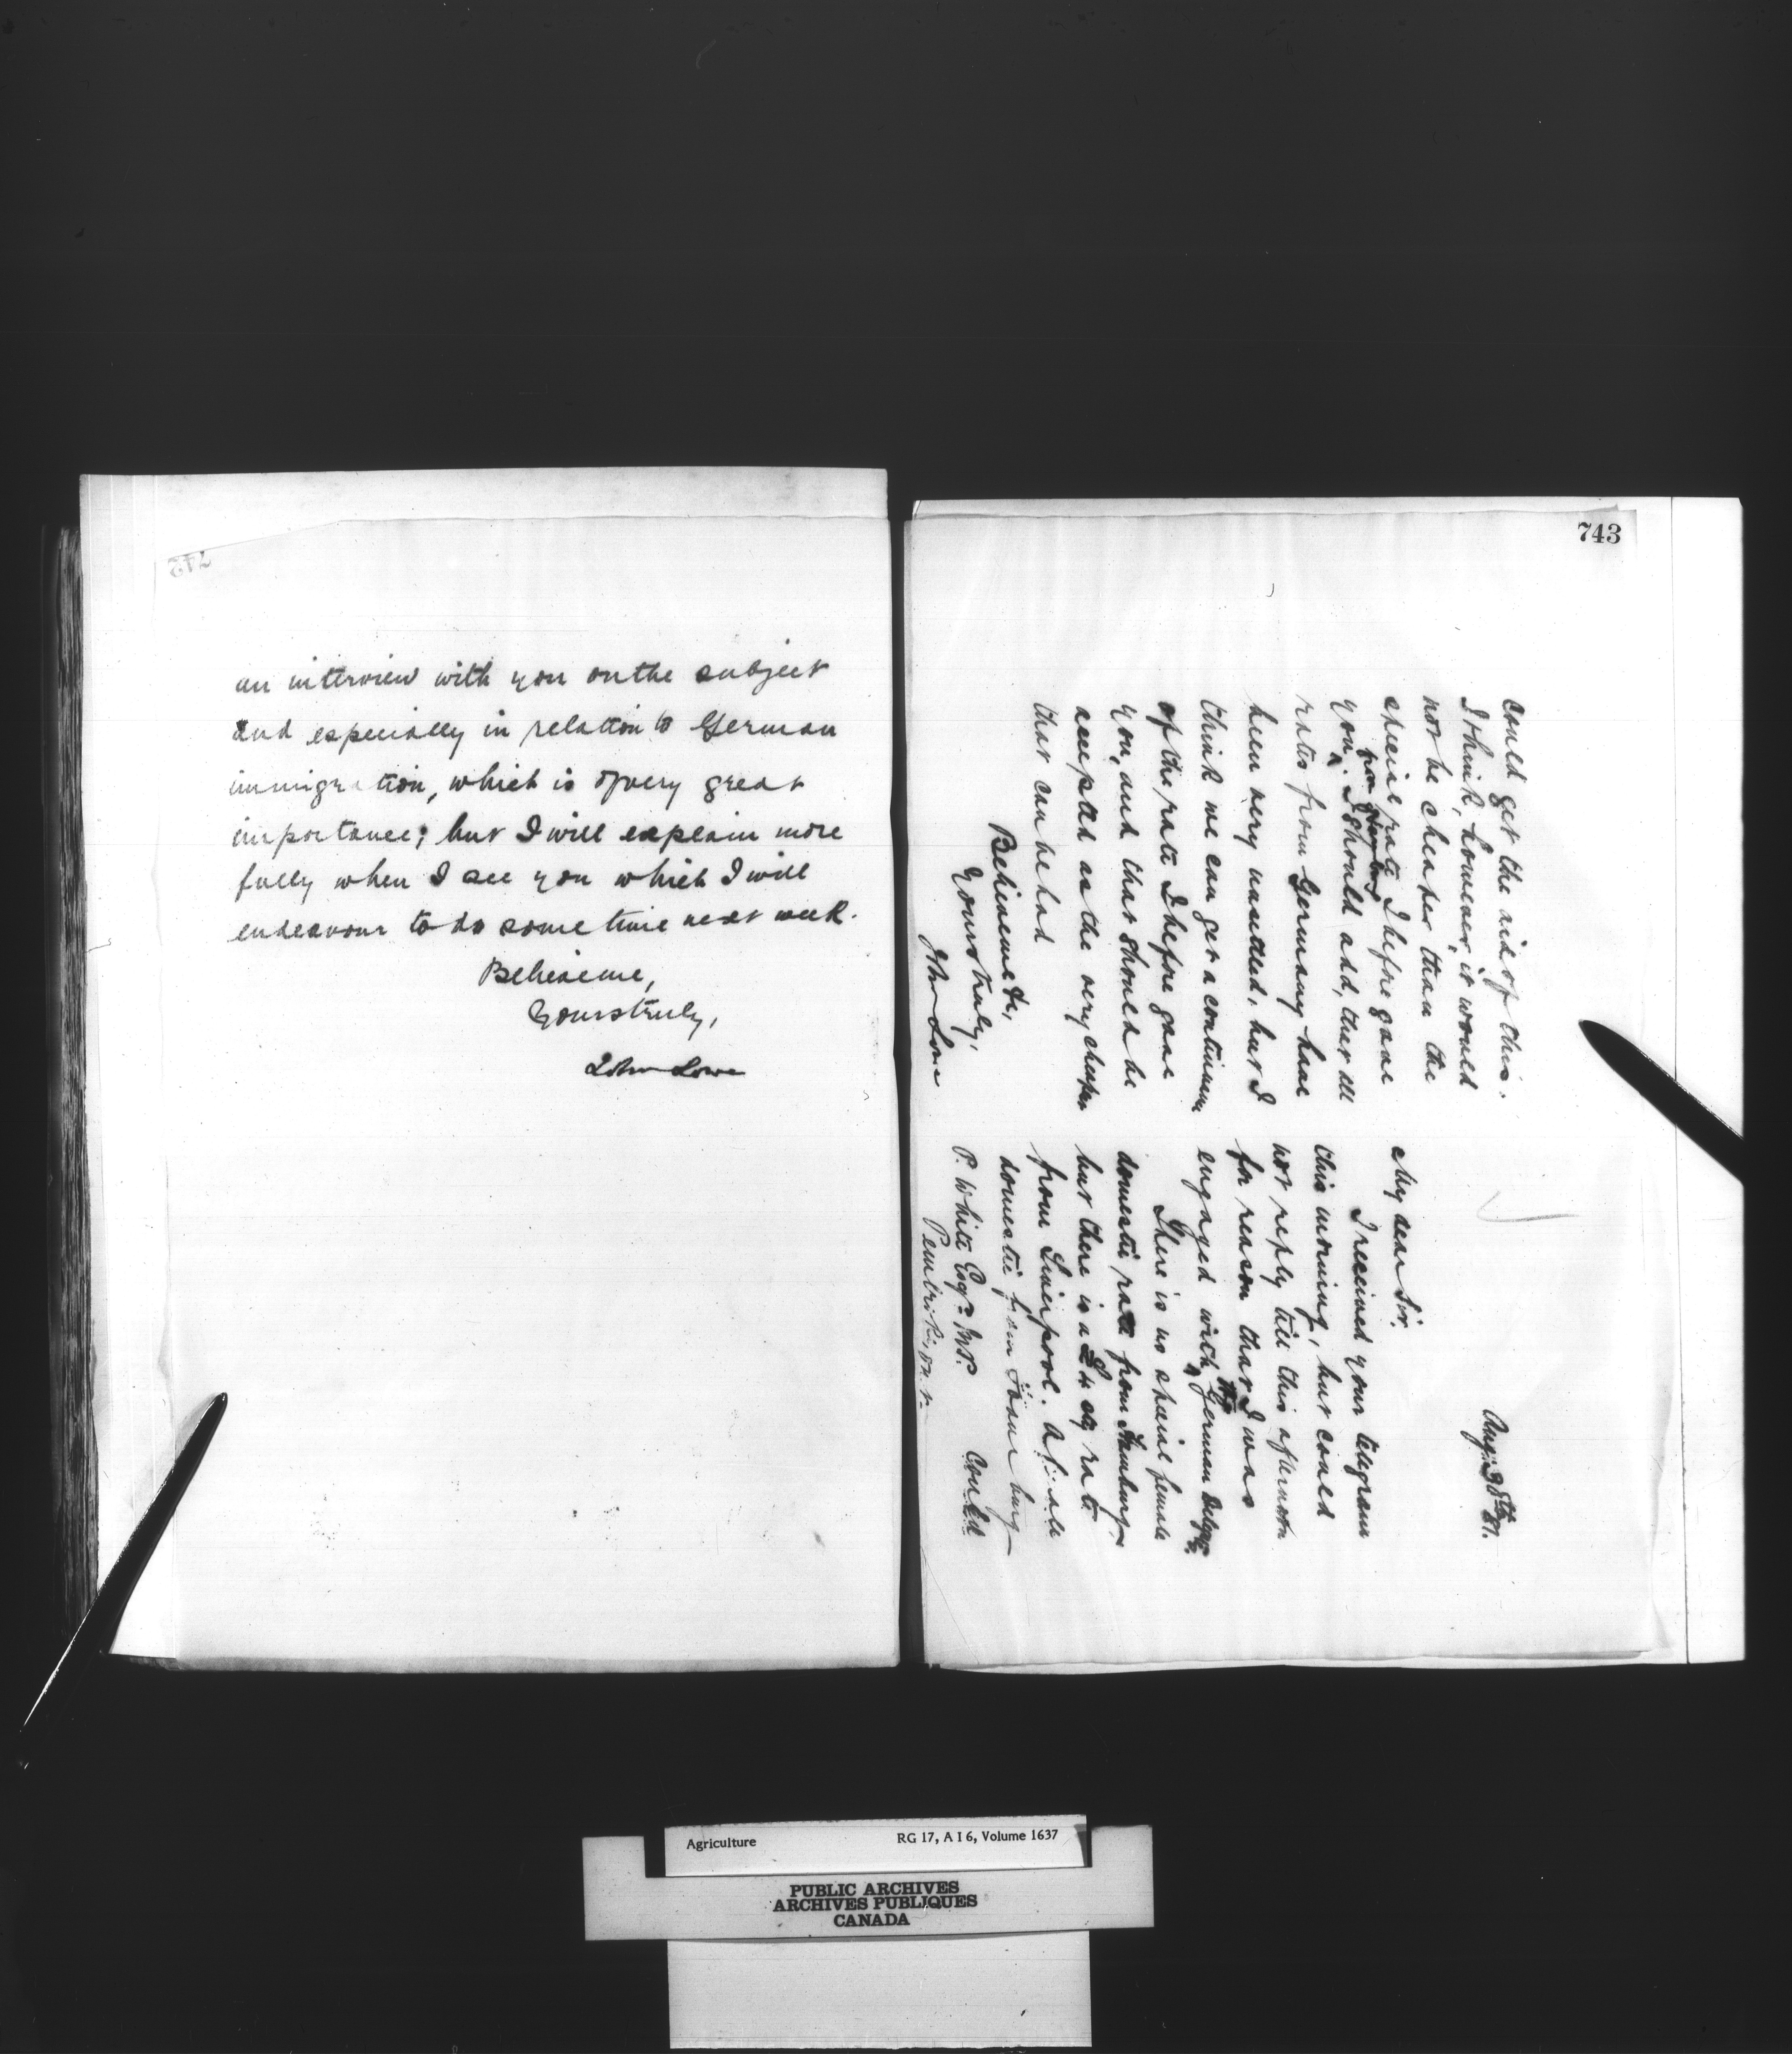 742
an interview with you on the subject
and especially in relation to German
immigration, which is of very great
importance; but I will explain more
fully when I see you which I will
endeavour to do some time next week.
Believe me,
Yours truly,
John Lowe
743
Aug. 30th 81.
My dear Sir.
I received your telegram
this morning, but could
not reply till this afternoon
for reason that I was
engaged with the German
There is no special female
domestic rate from Hamburg
but there is a £4 rate
from Liverpool.
domestic from Hamburg
could
P. White Esqr. M.P.
Pembroke, Ont.
could get the aid of this.
I think, however, it would
not be cheaper than the
special rate I before gave
you from Hamburg. I should add, that all
rates from Germany have
been very unsettled, but I
think we can get a continuance
of the rate I before gave
you, and that should be
accepted as the very cheapest
that can be had
Believe me &c,
Yours truly,
John Lowe
Agriculture
RG 17, A I 6, Volume 1637
PUBLIC ARCHIVES
ARCHIVES PUBLIQUES
CANADA